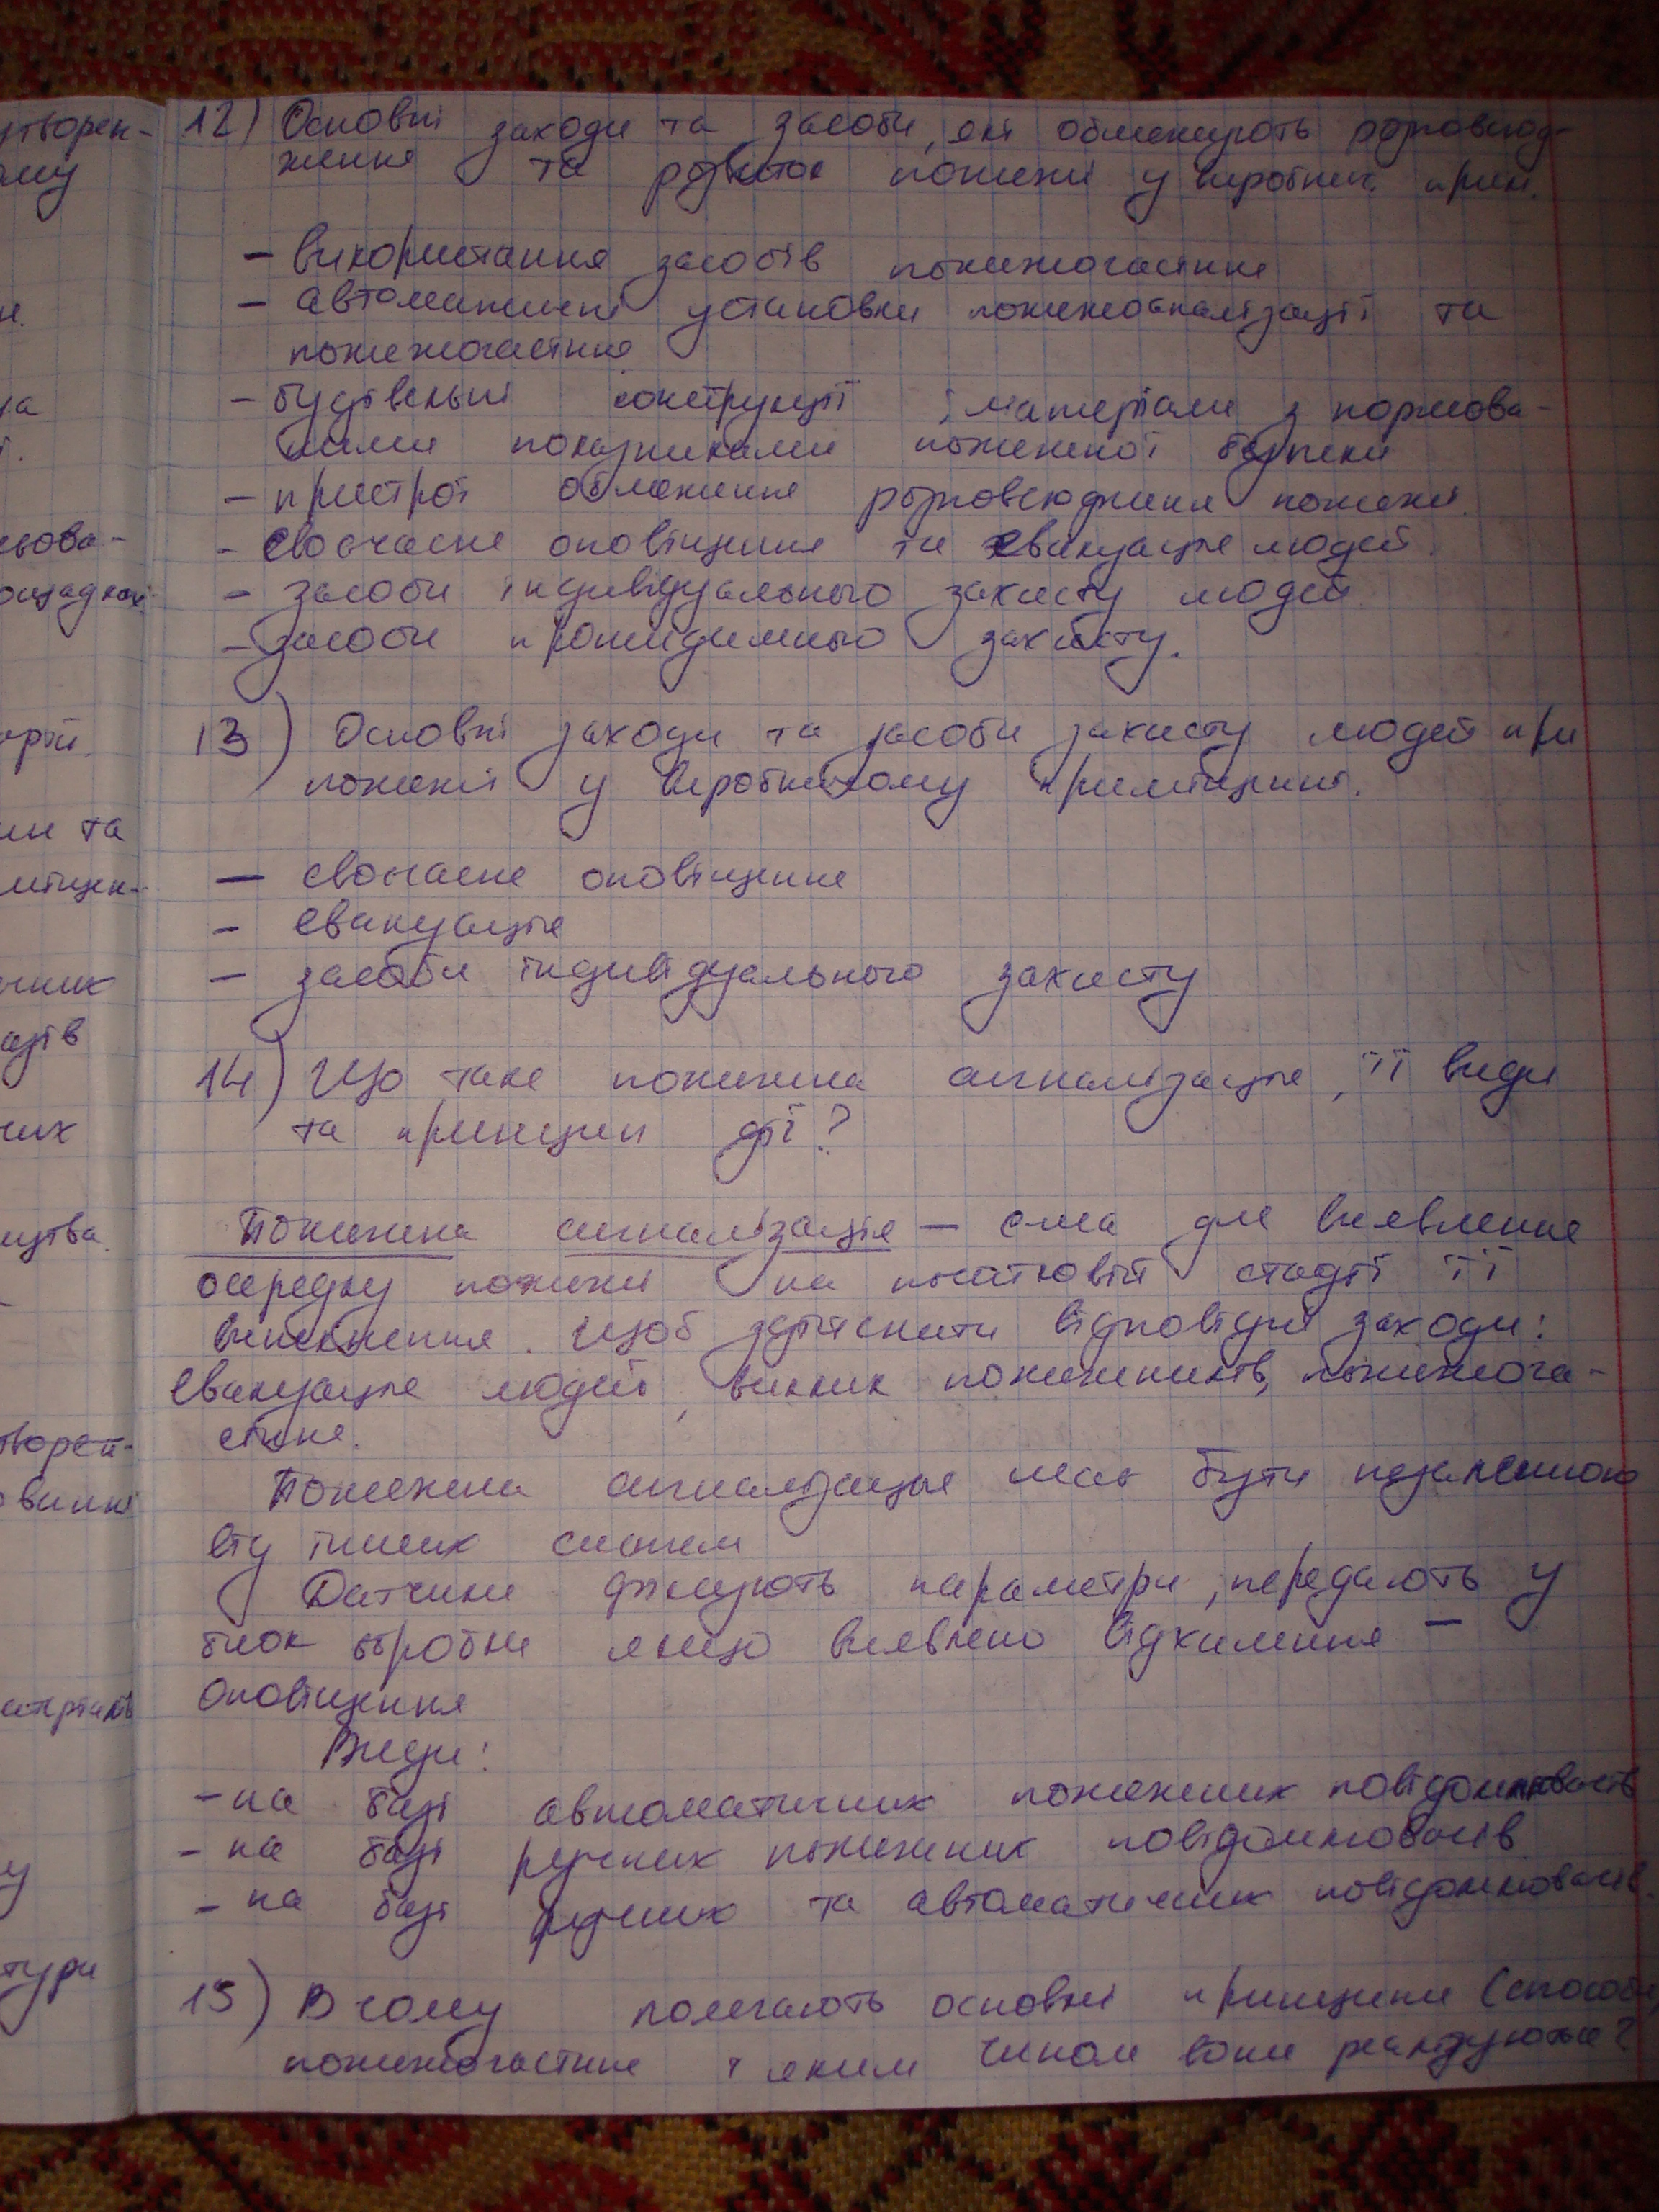 12) Основні заходи та засоби, які обмежують розповсюд-
ження та розвиток пожежі у виробнич. прим.
- використання засобів пожежогасіння
- автоматичні установки пожежосигналізації та
пожежогасіння
- будівельні конструкції і матеріали з нормова-
ними показниками пожежної безпеки
- пристрої обмеження розповсюдження пожежі.
- своєчасне оповіщення та евакуація людей.
- засоби індивідуального захисту людей.
- засоби протидимного захисту.
13) Основні заходи та засоби захисту людей при
пожежі у виробничому приміщенні.
- своєчасне оповіщення
- евакуація
- засоби індивідуального захисту
14) Що таке пожежна сигналізація, її види
та принцип дії?
Пожежна сигналізація - с-ма для виявлення
осередку пожежі на початковій стадії її
виникнення. Щоб здійснити відповідні заходи:
евакуація людей, виклик пожежників, пожежога-
сіння.
Пожежна сигналізація має бути незалежною
від інших систем
Датчики фіксують параметри, передають у
блок обробки якщо виявлено відхилення -
оповіщення
Види:
- на базі автоматичних пожежних повідомлювачів
- на базі ручних пожежних повідомлювачів
- на базі ручних та автоматичних повідомлювачів.
15) В чому полягають основні принципи (способи)
пожежогасіння і яким чином вони реалізуються?